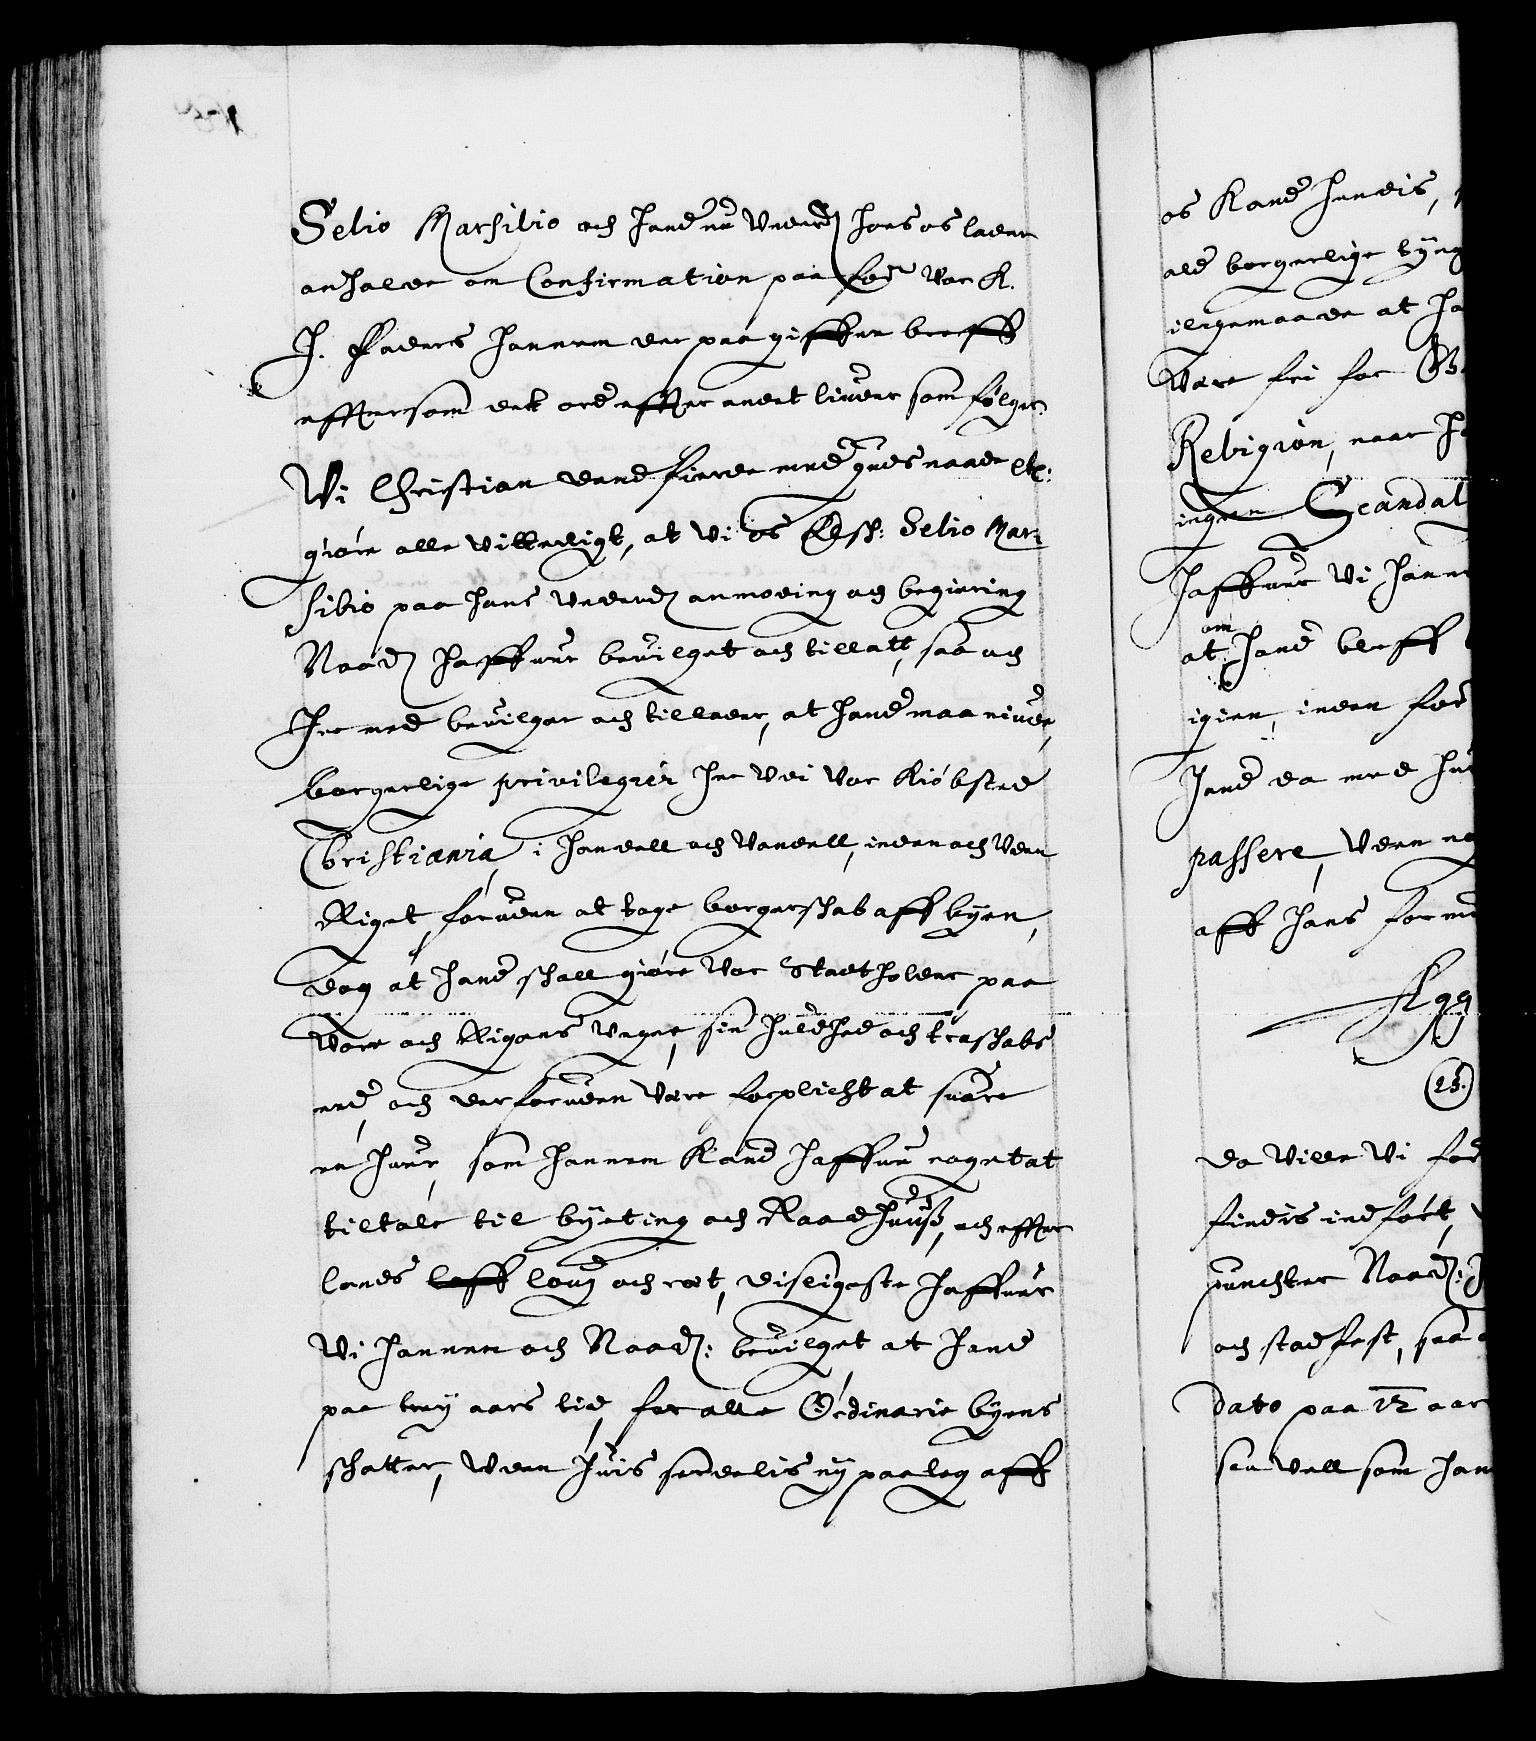 Selio Marsilio och hand nu underd: hoes os lader
anholde om Confirmation paa for^ne Vor K.
H. Faders hannem der paa giffne breff
efftersom det ord effter andet liuder som følger
Wi Christian dend fierde med guds naade etc:
giøre alle vitterligt, at Vi os Elsch: Selio Mar-
silio paa hans underd: anmoding och begiering
Naad: haffuer beuilget och tillatt, saa och
her med beuilger och tillader, at hand maa niude
borgerlige privilegier her Udi Vor Kiøbsted
Christiania i handell och Vandell, inden och Uden
Riget, foruden at tage borgerschab aff byen,
dog at hand schall giøre Vor Stadtholder paa
Vore och Rigens Vegne, sin huldhed och troschabs
eed, och derforuden Være forplicht at suare
en huer, som hannem Kand haffue noget at
tiltale til byeting och Raadhuuß, och effter
lands laff loug och ret, disligeste haffuer
Vi hannem och Naad: beuilget at hand
paa tuy aars tid, for alle Ordinarie byens
schatter, Uden huis serdelis ny paaleg aff
os Kand hendis,
ald borgerlige tyng
iligemaade at ha
Være fri for
Religion, naar h
ingen Scandal
haffuer Vi hann
om
at hand bleff
igien, inden for
hand da med hu
passere, Uden no
aff hans form
(25.)
da Ville Vi for
findis indført,
puncter Naad:
och stadfest, saa
Dato paa 12 aar
saa Vell som han